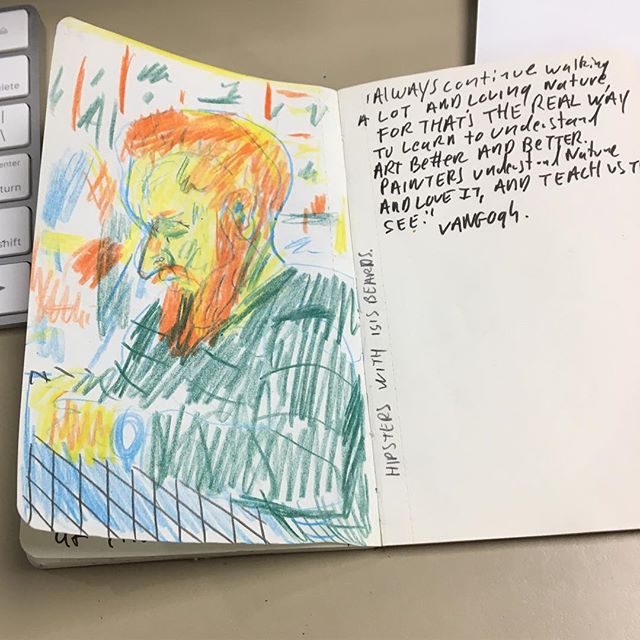 'Always continue walking
A LOT AND Loving Nature,
FOR THAT'S THE REAL WAY
TO LEARN to understand
ART BetteR AND BetteR.
PAINTERS understand Nature
AND LOVE IT, AND TEACH US T
SEE."
VANGOgh.
HIPSTERS WITH ISIS BEARDS.
elete
\
enter
turn
shift